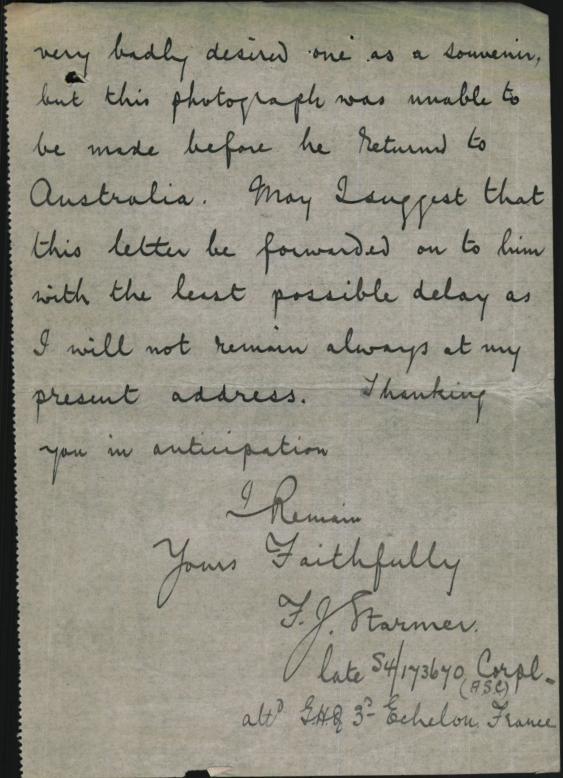 very badly desired one as a souvenir,
but this photograph was unable to
be made before he returned to
Australia. May I suggest that
this letter be forwarded on to him
with the least possible delay as
I will not remain always at my
present address. Thanking
you in anticipation
I Remain
Yours Faithfully
F. J. Starmer.
late S4/173670 Corpl-
(ASC)
attd GHQ 3rd Echelon France